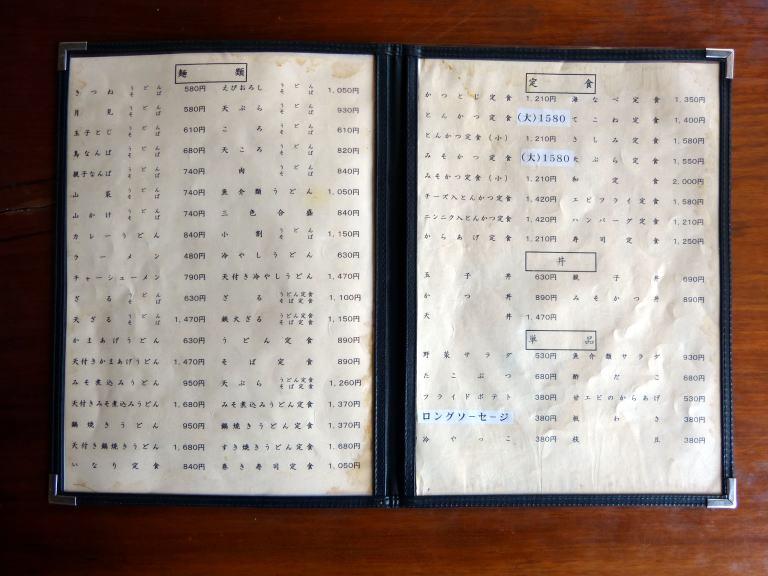 麺類
きつね うどん そば 580円
月見 うどん そば 580円
玉子とじ うどん そば 610円
鳥なんば うどん そば 680円
親子なんば うどん そば 740円
山菜 うどん そば 740円
山かけ うどん そば 740円
カレーうどん 840円
ラーメン 480円
チャーシューメン 790円
ざる うどん そば 630円
天ざる うどん そば 1,470円
かまあげうどん 630円
天付きかまあげうどん 1,470円
みそ煮込みうどん 950円
天付きみそ煮込みうどん 1,680円
鍋焼きうどん 950円
天付き鍋焼きうどん 1,680円
いなり定食 840円
えびおろし うどん そば 1,050円
天ぷら うどん そば 930円
ころ うどん そば 610円
天ころ うどん そば 820円
肉 うどん そば 840円
魚介類うどん 1,050円
三色合盛 840円
小割 うどん そば 1,150円
冷やしうどん 630円
天付き冷やしうどん 1,470円
ざる うどん定食 そば定食 1,100円
鉄火ざる うどん定食 そば定食 1,150円
うどん定食 890円
そば定食 890円
天ぷら うどん定食 そば定食 1,260円
みそ煮込みうどん定食 1,370円
鍋焼きうどん定食 1,370円
すき焼きうどん定食 1,680円
巻き寿司定食 1,050円
定食
かつとじ定食 1,210円
とんかつ定食 (大)1580
とんかつ定食(小) 1,210円
みそかつ定食 (大)1580
みそかつ定食(小) 1,210円
チーズ入とんかつ定食 1,420円
ニンニク入とんかつ定食 1,420円
からあげ定食 1,210円
海なべ定食 1,350円
てこね定食 1,400円
さしみ定食 1,580円
天ぷら定食 1,550円
和定食 2,000円
エビフライ定食 1,580円
ハンバーグ定食 1,210円
寿司定食 1,250円
丼
玉子丼 630円
かつ丼 890円
天丼 1,470円
親子丼 690円
みそかつ丼 890円
単品
野菜サラダ 530円
たこぶつ 680円
フライドポテト 380円
ロングソーセージ 380円
冷やっこ 380円
魚介類サラダ 930円
酢だこ 680円
甘エビのからあげ 530円
板わさ 380円
枝豆 380円